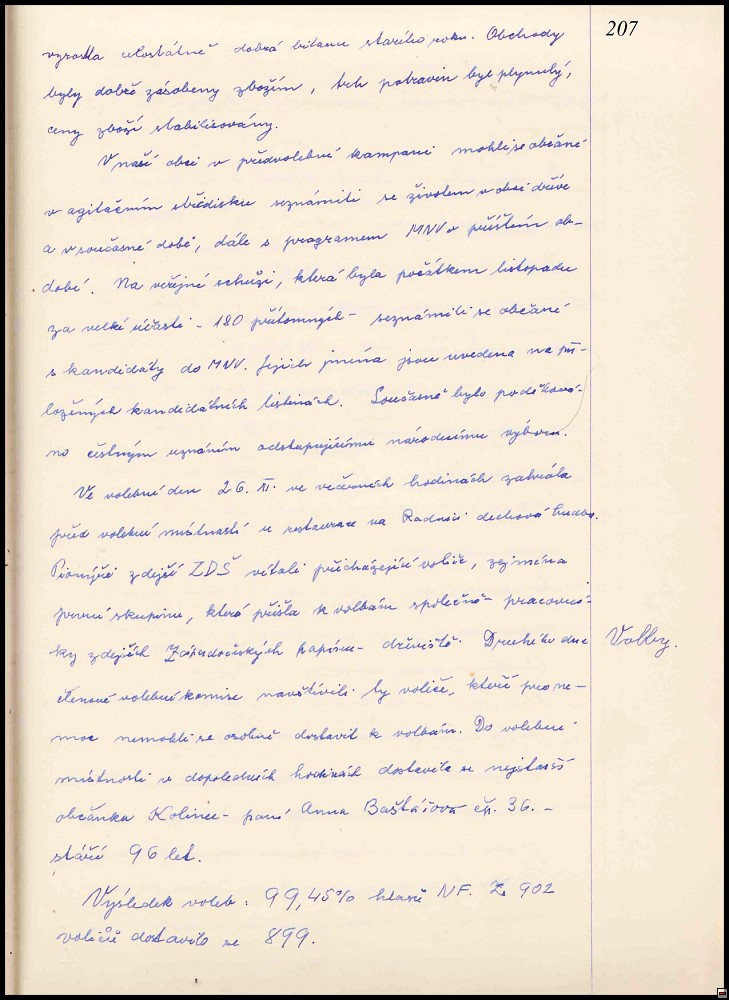 207
vzrostla celostátně dobrá bilance starého roku. Obchody
byly dobře zásobeny zbožím, trh potravin byl plynulý,
ceny zboží stabilisovány.
V naší obci v předvolební kampani mohli se občané
v agitačním středisku seznámiti se životem v obci dříve
a v současné době, dále s programem MNV v příštím ob-
dobí. Na veřejné schůzi, která byla počátkem listopadu
za velké účasti - 180 přítomných - seznámili se občané
s kandidáty do MNV. Jejich jména jsou uvedena na při-
ložených kandidátních listinách. Současně bylo poděková-
no čestným uznáním odstupujícímu národnímu výboru.
Ve volební den 26. XI. ve večerních hodinách zahrála
před volební místností u restaurace na Radnici dechová hudba.
Pionýři zdejší ZDŠ vítali přicházející voliče, zejména
první skupinu, která přišla k volbám společně - pracovní-
ky zdejších Západočeských papíren - dřeviště. Druhého dne
Volby.
členové volební komise navštívili ty voliče, kteří pro ne-
moc nemohli se osobně dostavit k volbám. Do volební
místnosti v dopoledních hodinách dostavila se nejstarší
občanka Kolince - paní Anna Baštářová čp. 36. -
stáří 96 let.
Výsledek voleb : 99,45% hlasů NF. Z 902
voličů dostavilo se 899.